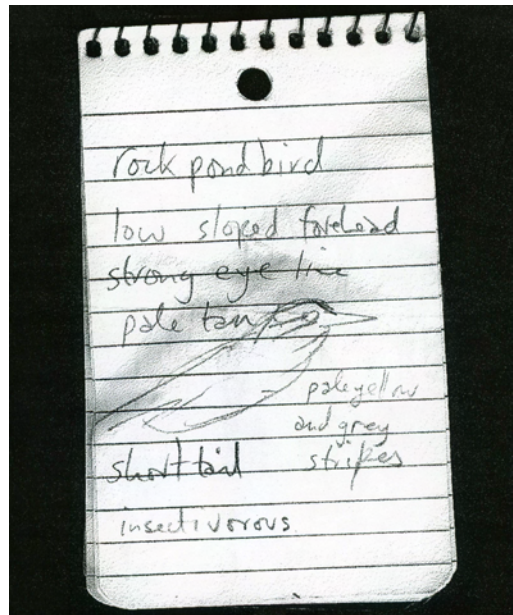 rock pond bird
low sloped forehead
strong eye line
pale tan
pale yellow
and grey
short tail stripes
insectivorous